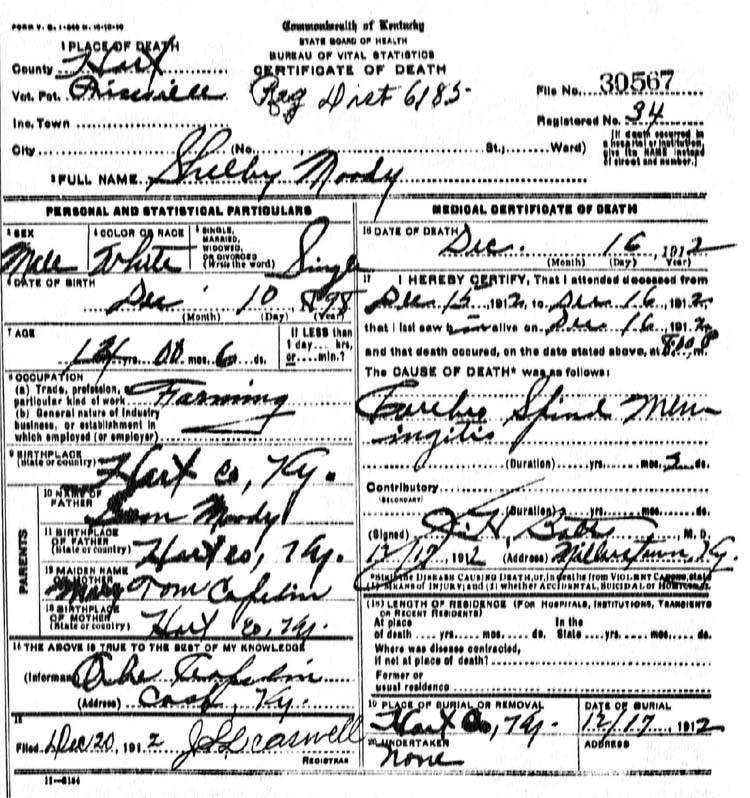 FORM V. S. 1
Commonwealth of Kentucky
STATE BOARD OF HEALTH
BUREAU OF VITAL STATISTICS
CERTIFICATE OF DEATH
1 PLACE OF DEATH
County Hart
Vot. Pct.
Reg Dist 6185
File No. 30567
Inc. Town
Registered No. 34
City (No. St.; Ward)
(If death occurred in a hospital or institution, give its NAME instead of street and number.)
2 FULL NAME Shelby Moody
PERSONAL AND STATISTICAL PARTICULARS
3 SEX Male
4 COLOR OR RACE White
5 SINGLE, MARRIED, WIDOWED, OR DIVORCED (Write the word) Single
6 DATE OF BIRTH
Dec 10 1898
(Month) (Day) (Year)
7 AGE
yrs. mos. 6 ds.
If LESS than 1 day hrs. or min.?
8 OCCUPATION
(a) Trade, profession, or particular kind of work Farming
(b) General nature of industry business, or establishment in which employed (or employer)
9 BIRTHPLACE
(State or country) Hart co, Ky.
PARENTS
10 NAME OF FATHER Moody
11 BIRTHPLACE OF FATHER
(State or country) Hart co, Ky.
12 MAIDEN NAME OF MOTHER Mary Tom
13 BIRTHPLACE OF MOTHER
(State or country) Hart co, Ky.
14 THE ABOVE IS TRUE TO THE BEST OF MY KNOWLEDGE
(Informant)
(Address) Ky.
15
Filed Dec 20, 1912
REGISTRAR
11-6184
MEDICAL CERTIFICATE OF DEATH
16 DATE OF DEATH
Dec. 16, 1912
(Month) (Day) (Year)
17 I HEREBY CERTIFY, That I attended deceased from
Dec 15, 1912, to Dec 16, 1912,
that I last saw him alive on Dec 16, 1912,
and that death occured, on the date stated above, at m.
The CAUSE OF DEATH* was as follows:
Cerebro Spinal Men
ingitis
(Duration) yrs. mos. ds.
Contributory
(SECONDARY)
(Duration) yrs. mos. ds.
(Signed) J. H. M. D.
12/17, 1912 (Address) Millerstown, Ky.
*State the DISEASE CAUSING DEATH, or, in deaths from VIOLENT CAUSES, state
(1) MEANS OF INJURY; and (2) whether ACCIDENTAL, SUICIDAL or HOMICIDAL.
18 LENGTH OF RESIDENCE (FOR HOSPITALS, INSTITUTIONS, TRANSIENTS OR RECENT RESIDENTS)
At place of death yrs. mos. ds. In the State yrs. mos. ds.
Where was disease contracted,
if not at place of death?
Former or
usual residence
19 PLACE OF BURIAL OR REMOVAL
Hart Co, Ky.
DATE OF BURIAL
12/17, 1912
20 UNDERTAKER
None
ADDRESS